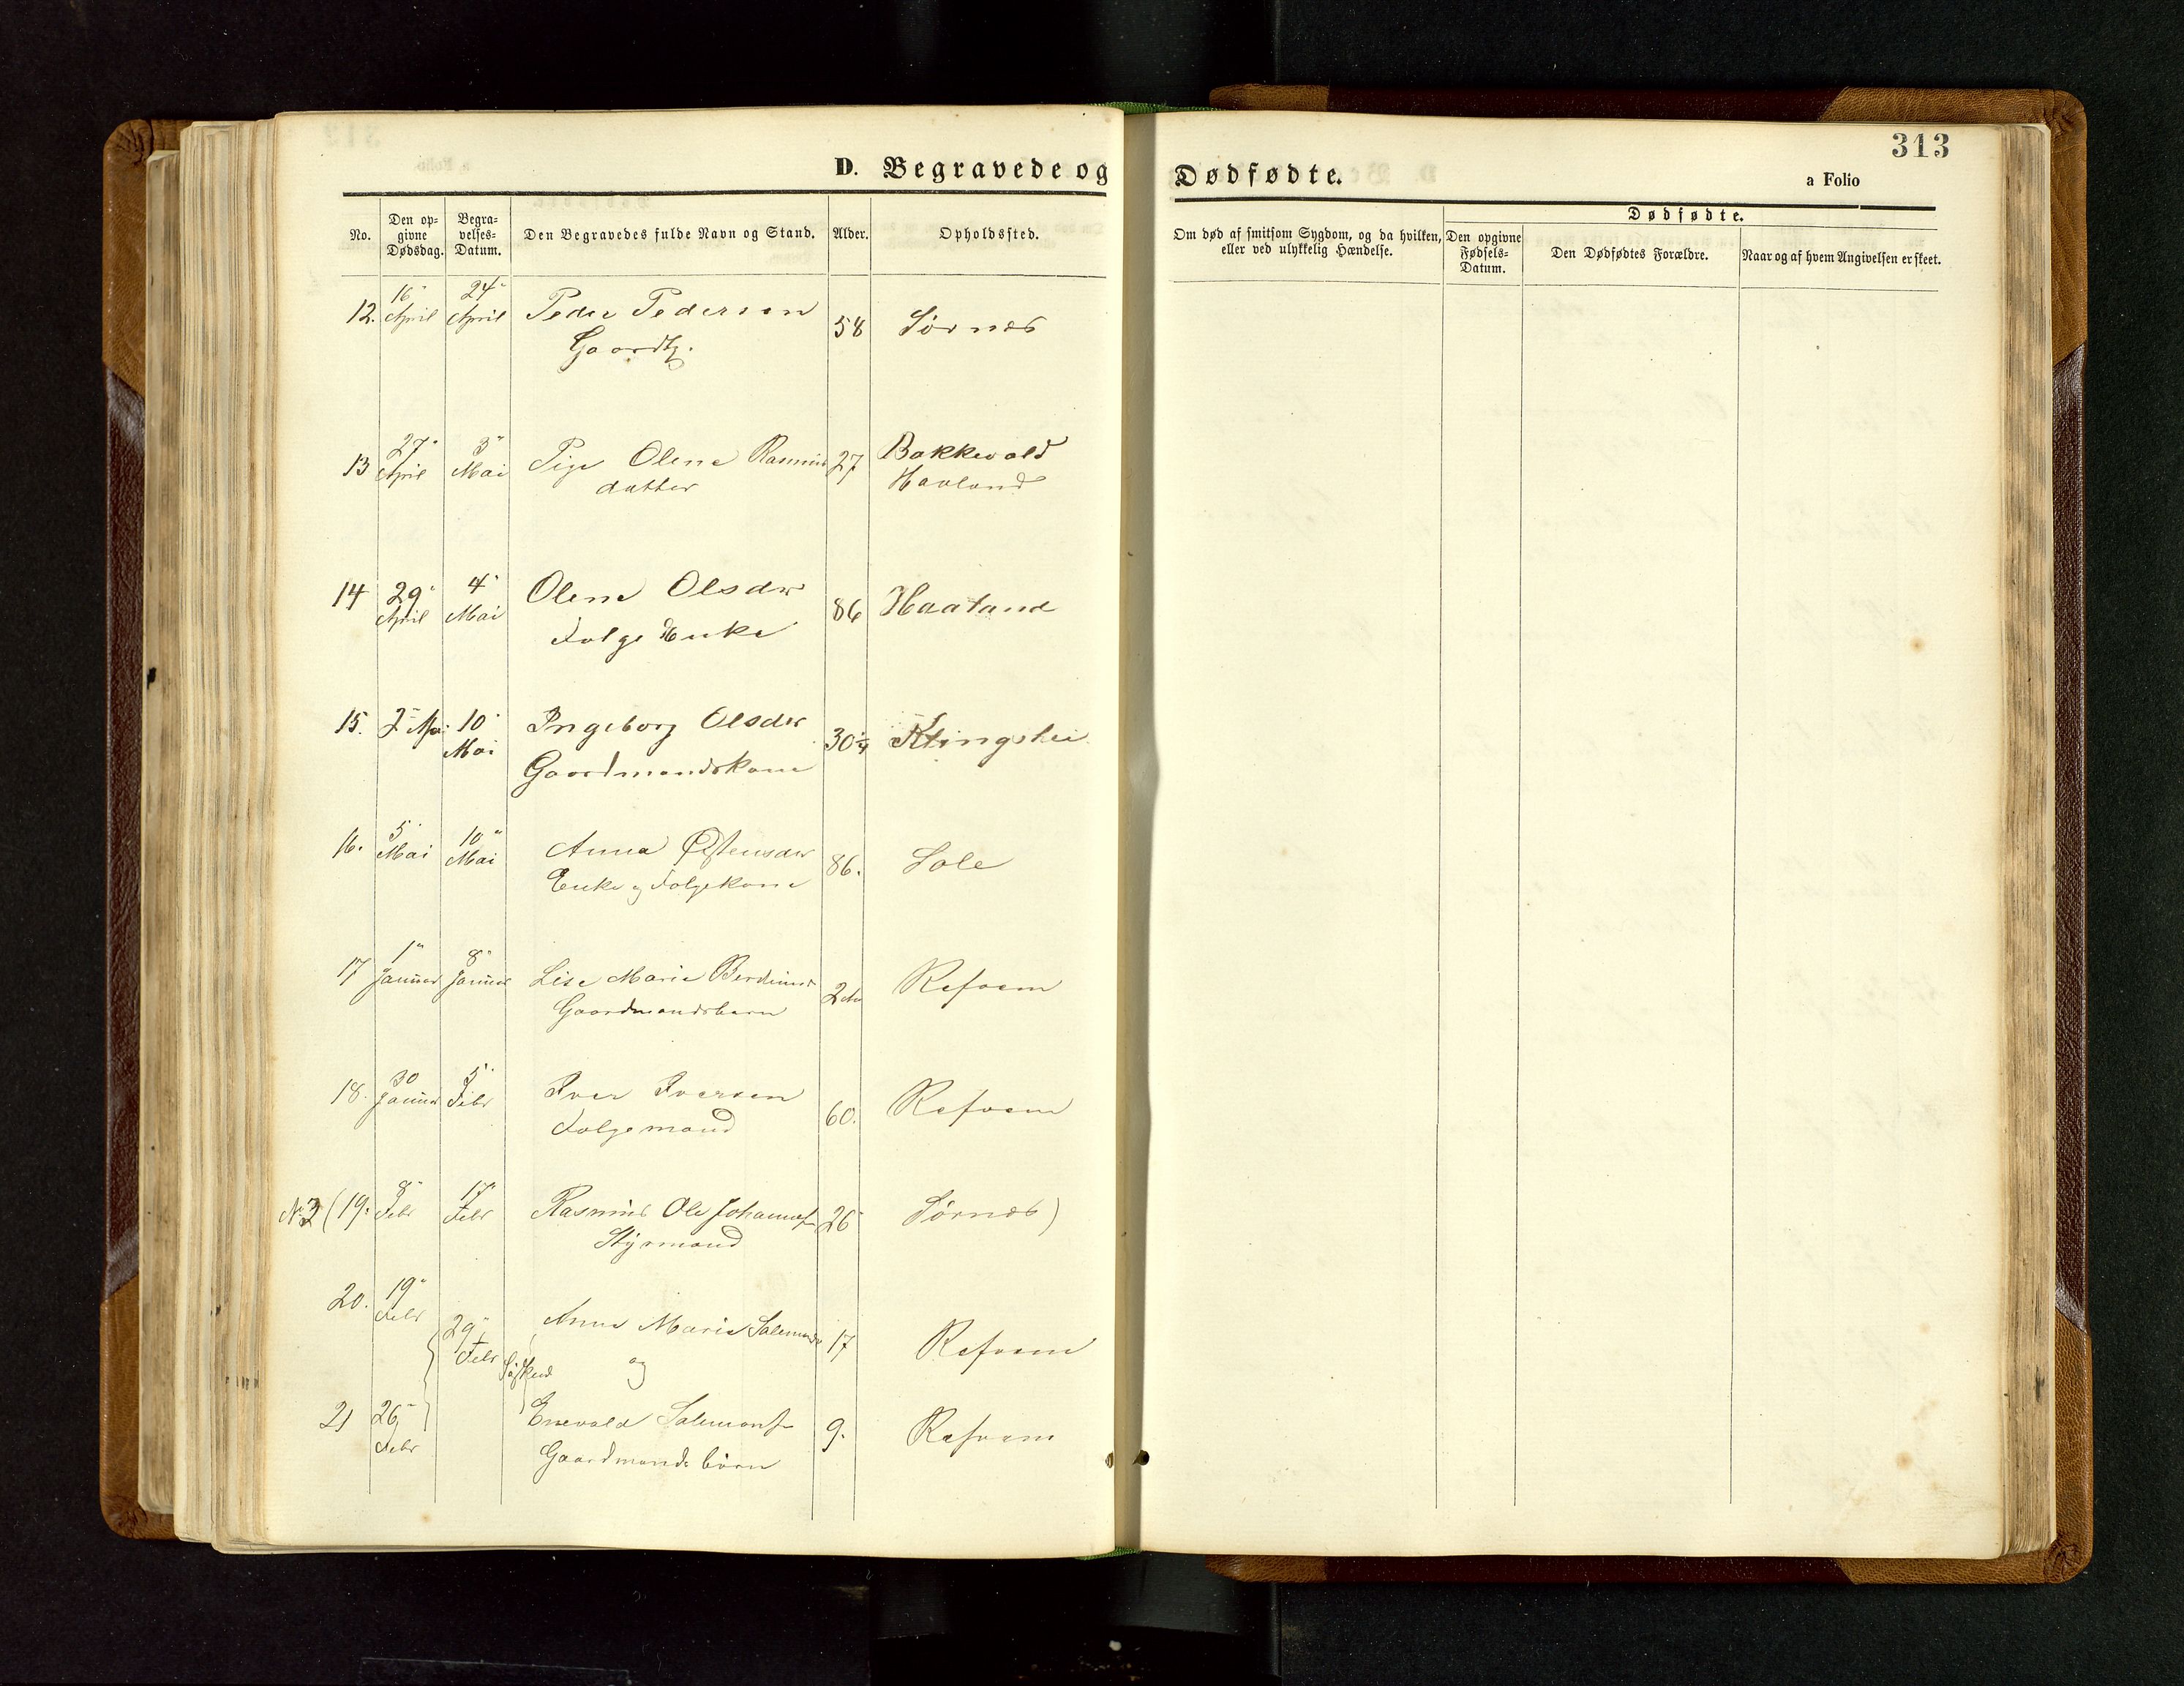 D. Begravede og Dødfødte.
313
a Folio
No.
Den op-
givne
Dødsdag.
Begra-
velses-
Datum.
Den Begravedes fulde Navn og Stand.
Alder.
Opholdssted.
Om død af smitsom Sygdom, og da hvilken,
eller ved ulykkelig Hændelse.
Dødfødte.
Den opgivne
Fødsels-
Datum.
Den Dødfødtes Forældre.
Naar og af hvem Angivelsen er skeet.
12. 16 April 24 April Peder Pedersen 58 Sørnes
Gaardbr.
13 27 April 3 Mai Pige Olene Rasmus 27 Bakkevold
datter Haaland
14 29 April 4 Mai Olene Olsdr 86 Haaland
Folge Enke
15. 2 Mai 10 Mai Ingeborg Olsdr 30 Klingshei
Gaardmandskone
16. 5 Mai 10 Mai Anna Østensdr 86. Sole
Enke og Folgekone
17 1 Januar 8 Januar Lise Marie 2 Refvem
Gaardmandsbarn
18. 30 Januar 5 Febr Iver Iversen 60. Refvem
Folgemand
N. (19. 8 Febr 17 Febr Rasmus Ole Johannes 26 Sørnes)
Styrmand
20. 19 Febr 29 Febr Anne Marie 17 Refvem
Søskend og
21 26 Febr Enevald Salemons 9. Refvem
Gaardmands børn